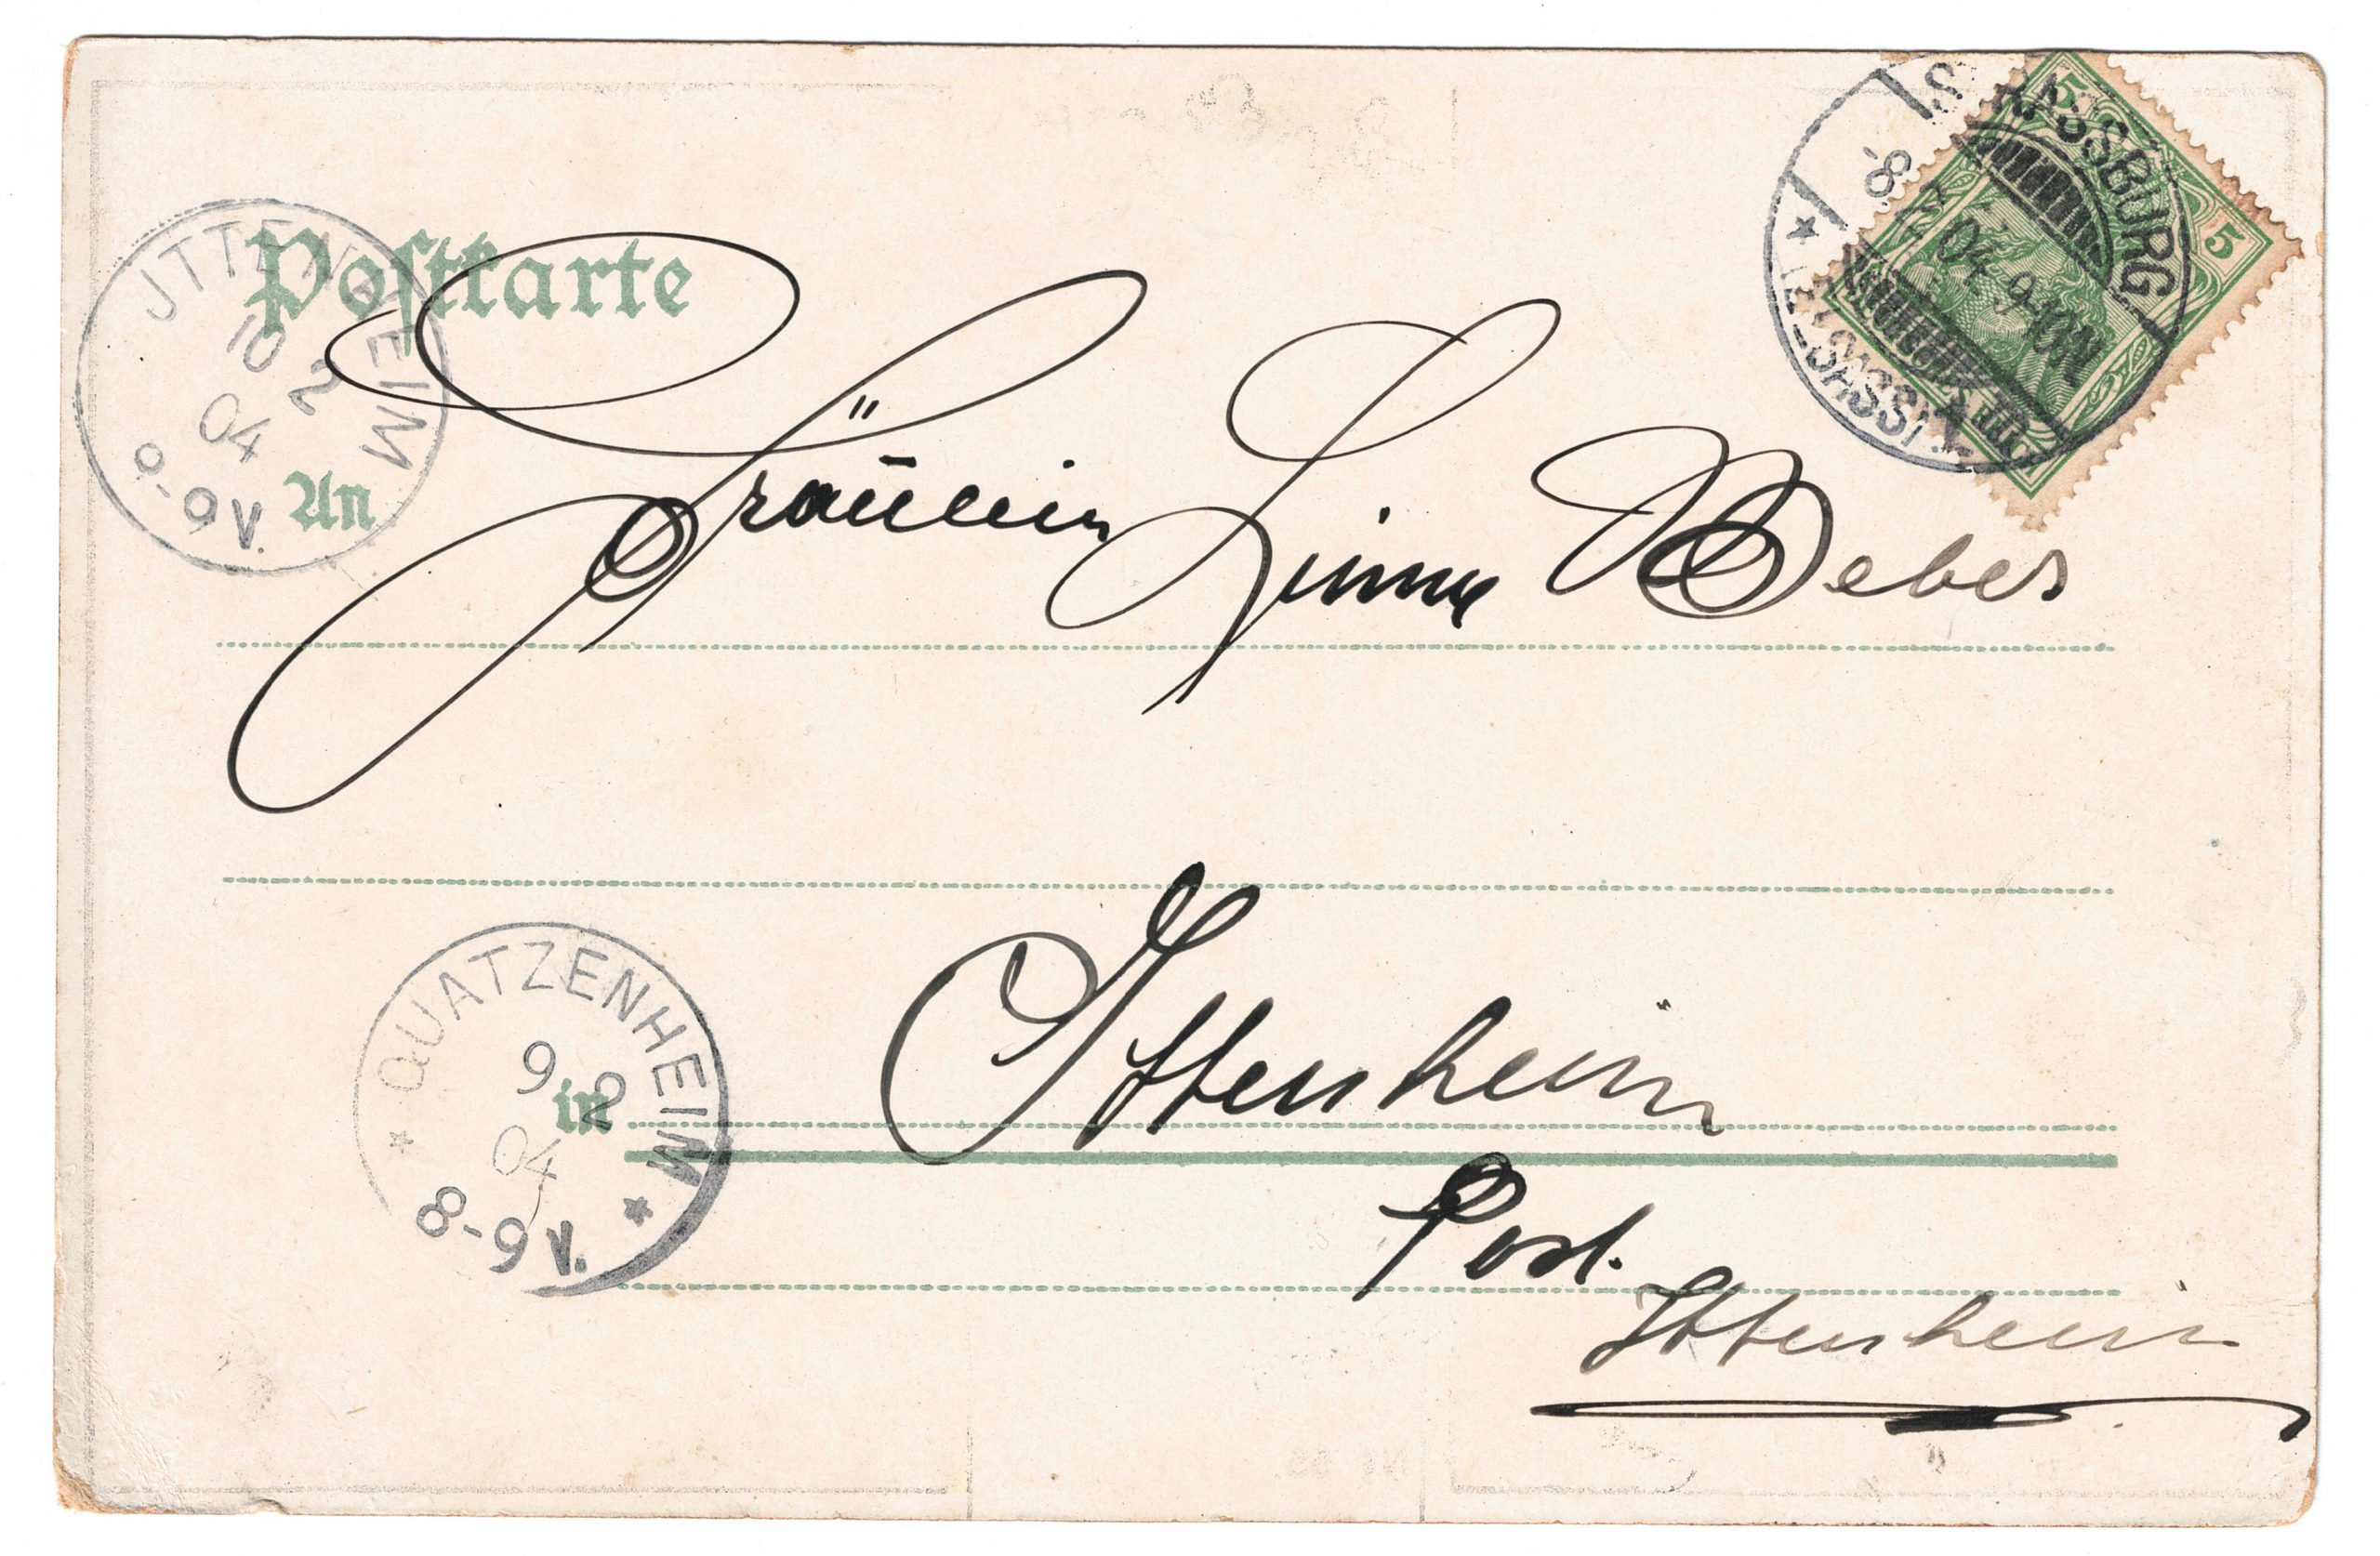 Postkarte
JTTENHEIM
10 2
04
8-9V.
An
STRASSBURG
-8. 2. 04. 9-10N.
* (ELSASS) *
5
5
Fräulein Linna Weber
QUATZENHEIM
9 2
04
8-9V.
in
Ittenheim
Post.
Ittenheim